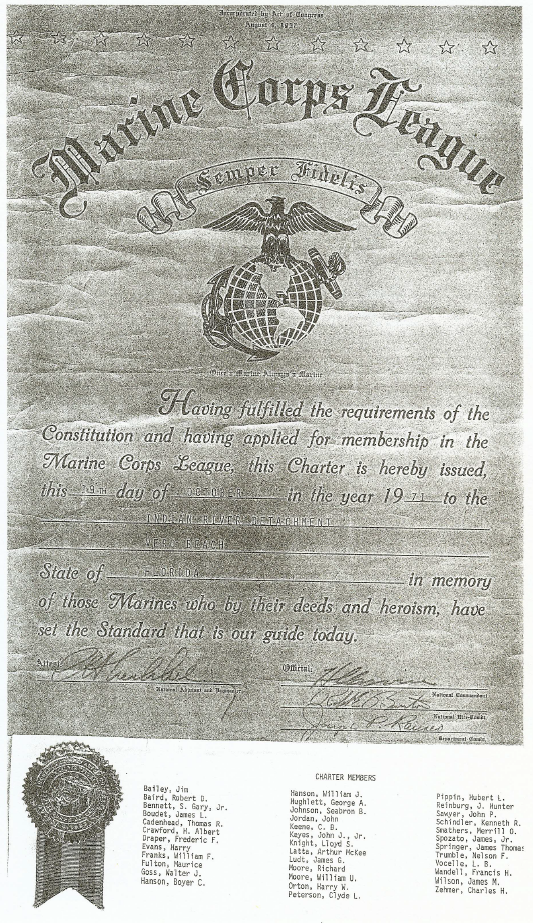 Incorporated by Act of Congress
August 4, 1937
Marine Corps League
Semper Fidelis
Once a Marine Always a Marine
Having fulfilled the requirements of the
Constitution and having applied for membership in the
Marine Corps League, this Charter is hereby issued,
this 19TH day of OCTOBER in the year 19 71 to the
INDIAN RIVER DETACHMENT
VERO BEACH
State of FLORIDA in memory
of those Marines who by their deeds and heroism, have
set the Standard that is our guide today.
Attest
Official:
National Adjutant and Paymaster
National Commandant
National Vice-Comdt.
Department Comdt.
CHARTER MEMBERS
Bailey, Jim
Baird, Robert D.
Bennett, S. Gary, Jr.
Boudet, James L.
Cadenhead, Thomas R.
Crawford, H. Albert
Draper, Frederic F.
Evans, Harry
Franks, William F.
Fulton, Maurice
Goss, Walter J.
Hanson, Boyer C.
Hanson, William J.
Hughlett, George A.
Johnson, Seabron B.
Jordan, John
Keene, C. B.
Keyes, John J., Jr.
Knight, Lloyd S.
Latta, Arthur McKee
Ludt, James G.
Moore, Richard
Moore, William U.
Orton, Harry W.
Peterson, Clyde L.
Pippin, Hubert L.
Reinburg, J. Hunter
Sawyer, John P.
Schindler, Kenneth R.
Smathers, Merrill O.
Spozato, James, Jr.
Springer, James Thomas
Trumble, Nelson F.
Vocelle, L. B.
Wandell, Francis H.
Wilson, James M.
Zehmer, Charles H.